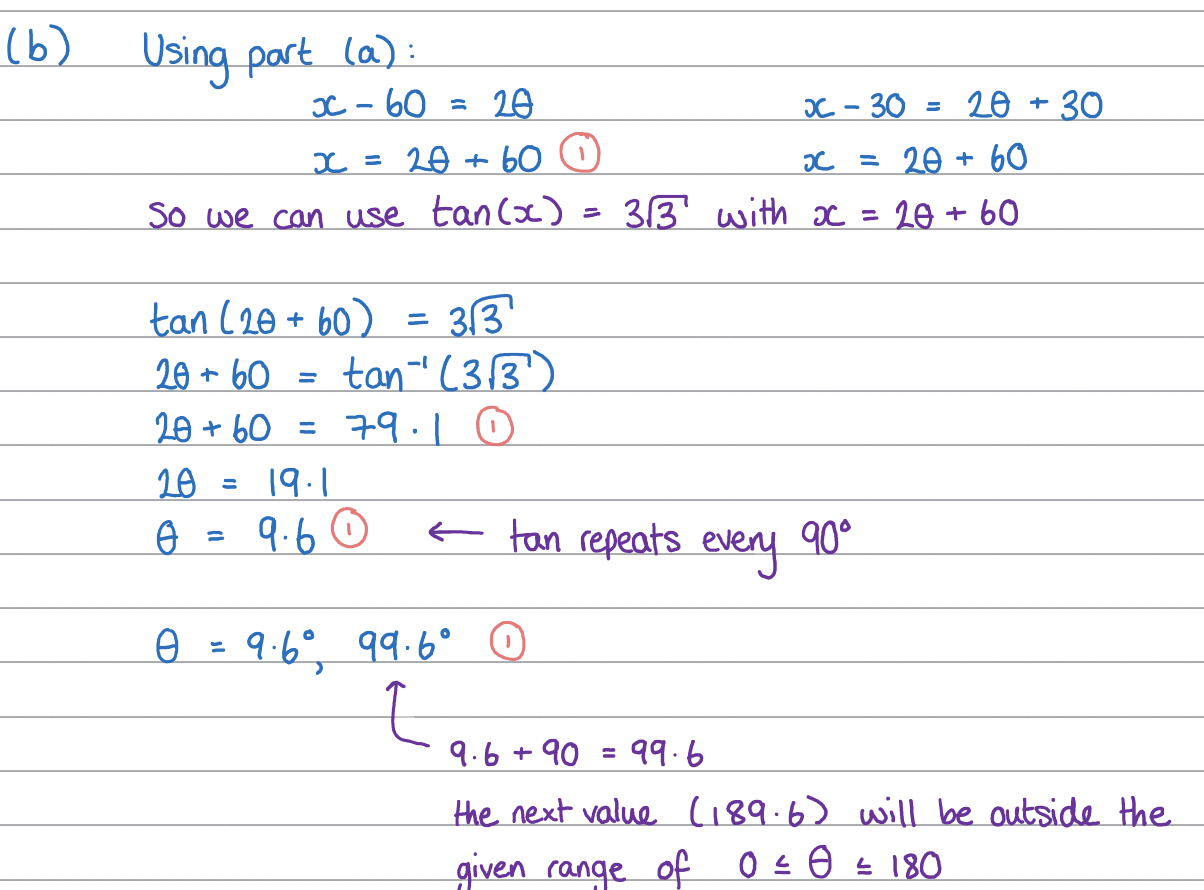 (b) Using part (a):
x - 60 = 2θ x - 30 = 2θ + 30
x = 2θ + 60 ① x = 2θ + 60
So we can use tan(x) = 3√3 with x = 2θ + 60
tan(2θ + 60) = 3√3
2θ + 60 = tan⁻¹(3√3)
2θ + 60 = 79.1 ①
2θ = 19.1
θ = 9.6 ① ← tan repeats every 90°
θ = 9.6°, 99.6° ①
9.6 + 90 = 99.6
the next value (189.6) will be outside the
given range of 0 ≤ θ ≤ 180